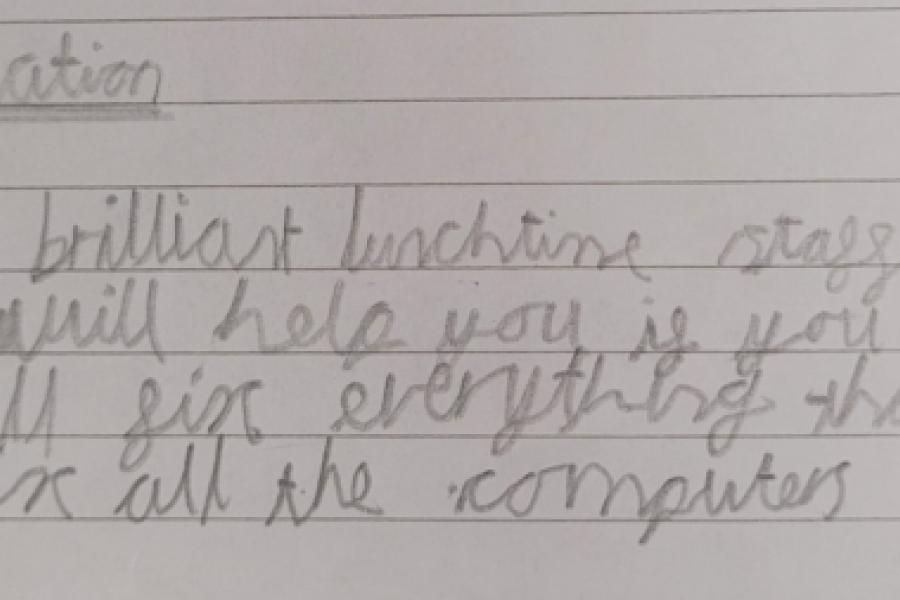 ation
brilliant lunchtime staff
will help you if you
ll fix everything tha
x all the computers